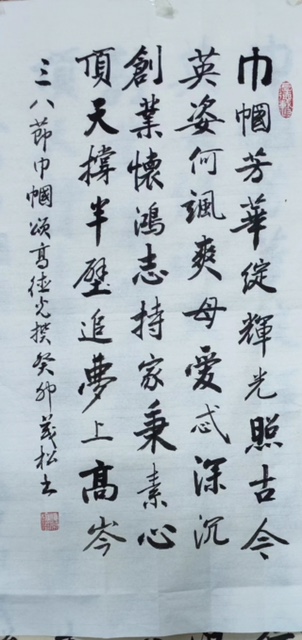 巾幗芳華綻輝光照古今
英姿何颯爽母愛忒深沉
創業懷鴻志持家秉素心
頂天撐半壁追夢上高岑
三八節巾幗頌高德光撰癸卯茂松書